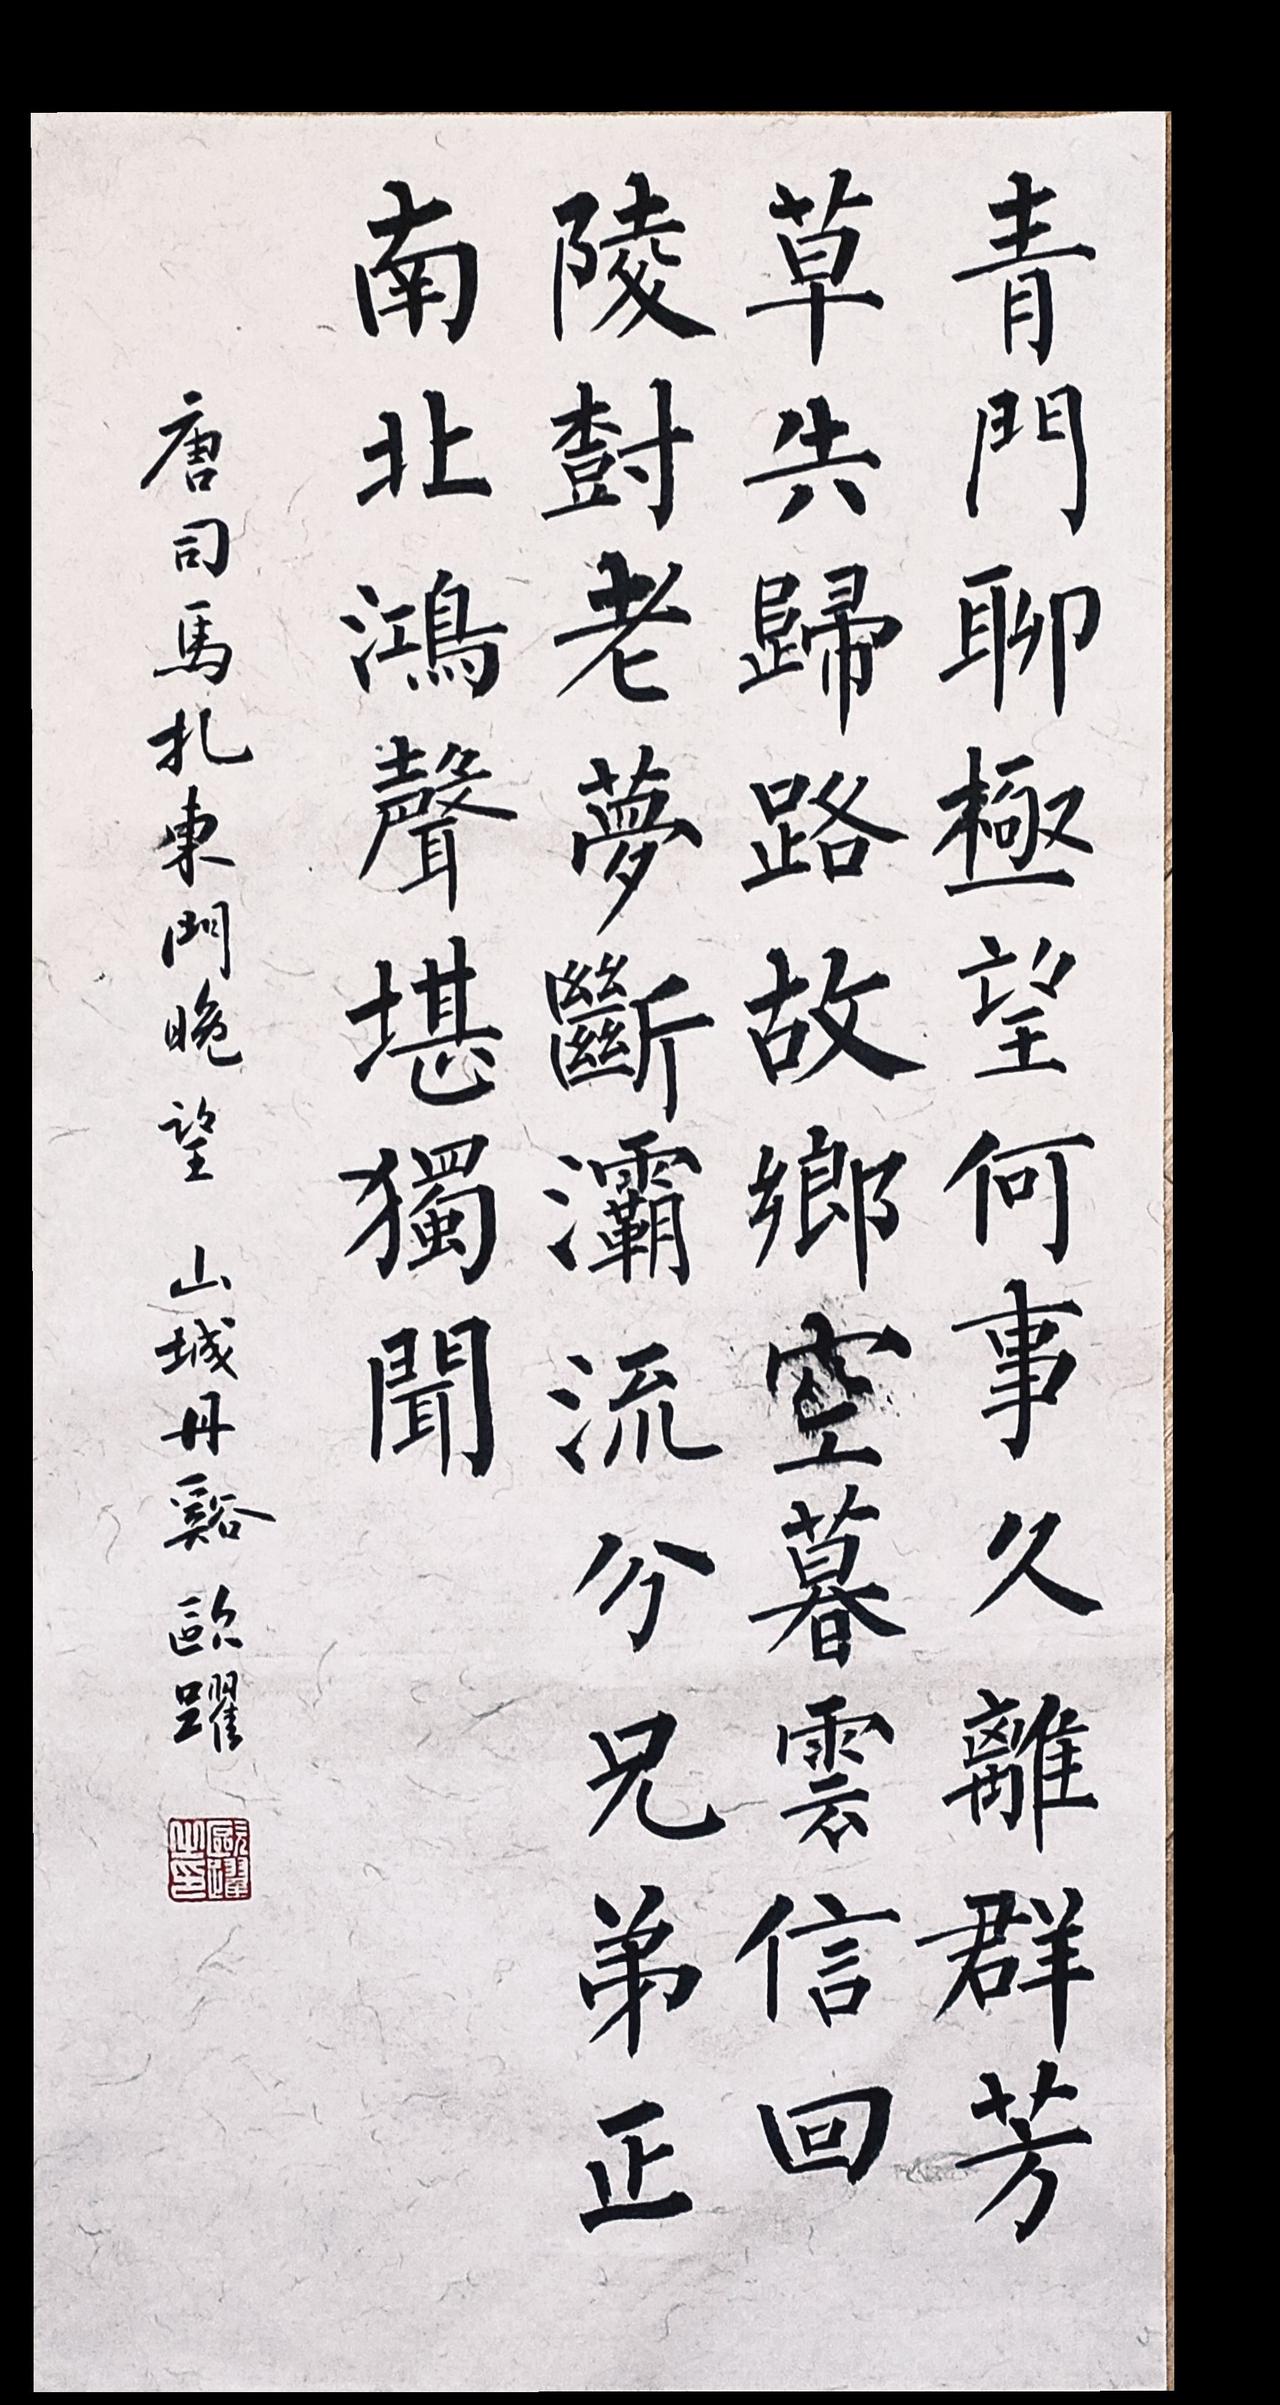 青門聊極望何事久離群芳
草失歸路故鄉空暮雲信回
陵樹老夢斷灞流分兄弟正
南北鴻聲堪獨聞
唐司馬扎東門晚望 山城丹谿 歐躍
歐躍之印